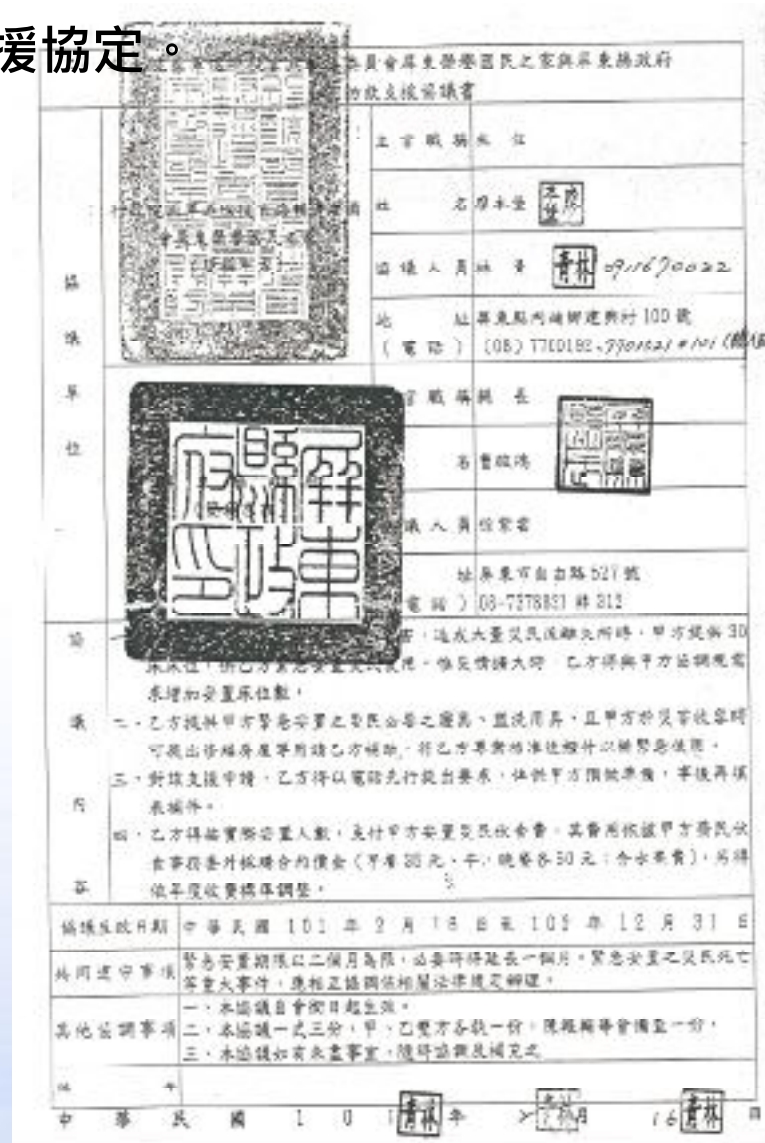 援協定。
委員會屏東榮譽國民之家與屏東縣政府
支援協議書
主官職稱 主任
姓名
協議人員 林青 0911670022
地址 屏東縣內埔鄉建興村100號
(電話) (08) 7700192、7701621#101
行政院國軍退除役官兵輔導
委員會屏東榮譽
協議單位
官職稱 縣長
名 曹啟鴻
議人員
址 屏東市自由路527號
電話) 08-7378821 轉 312
屏東縣政府印
協議內容
害,造成大量災民流離失所時,甲方提供30
床床位,供乙方緊急安置災民使用。惟災情擴大時,乙方得與甲方協調視需
求增加安置床位數。
二、乙方提供甲方緊急安置之災民必要之寢具、盥洗用具,且甲方於災害收容時
可提出修繕房屋等申請乙方補助,將乙方專款核准後撥付以備緊急使用。
三、對該支援申請,乙方得以電話先行提出要求,俾供甲方預做準備,事後再填
表補件。
四、乙方得按實際安置人數,支付甲方安置災民伙食費。其費用依據甲方榮民伙
食事務委外採購合約價金(早餐35元、午、晚餐各50元;含水果費),另得
依年度收費標準調整。
協議生效日期 中華民國 101 年 2 月 16 日至 102 年 12 月 31 日
共同遵守事項 緊急安置期限以二個月為限,必要時得延長一個月。緊急安置之災民死亡
等重大事件,應相互協調依相關法律規定辦理。
其他協調事項 一、本協議自會銜日起生效。
二、本協議一式三份,甲、乙雙方各執一份,陳報輔導會備查一份。
三、本協議如有未盡事宜,隨時協調及補充之
中華民國 101 年 2 月 16 日